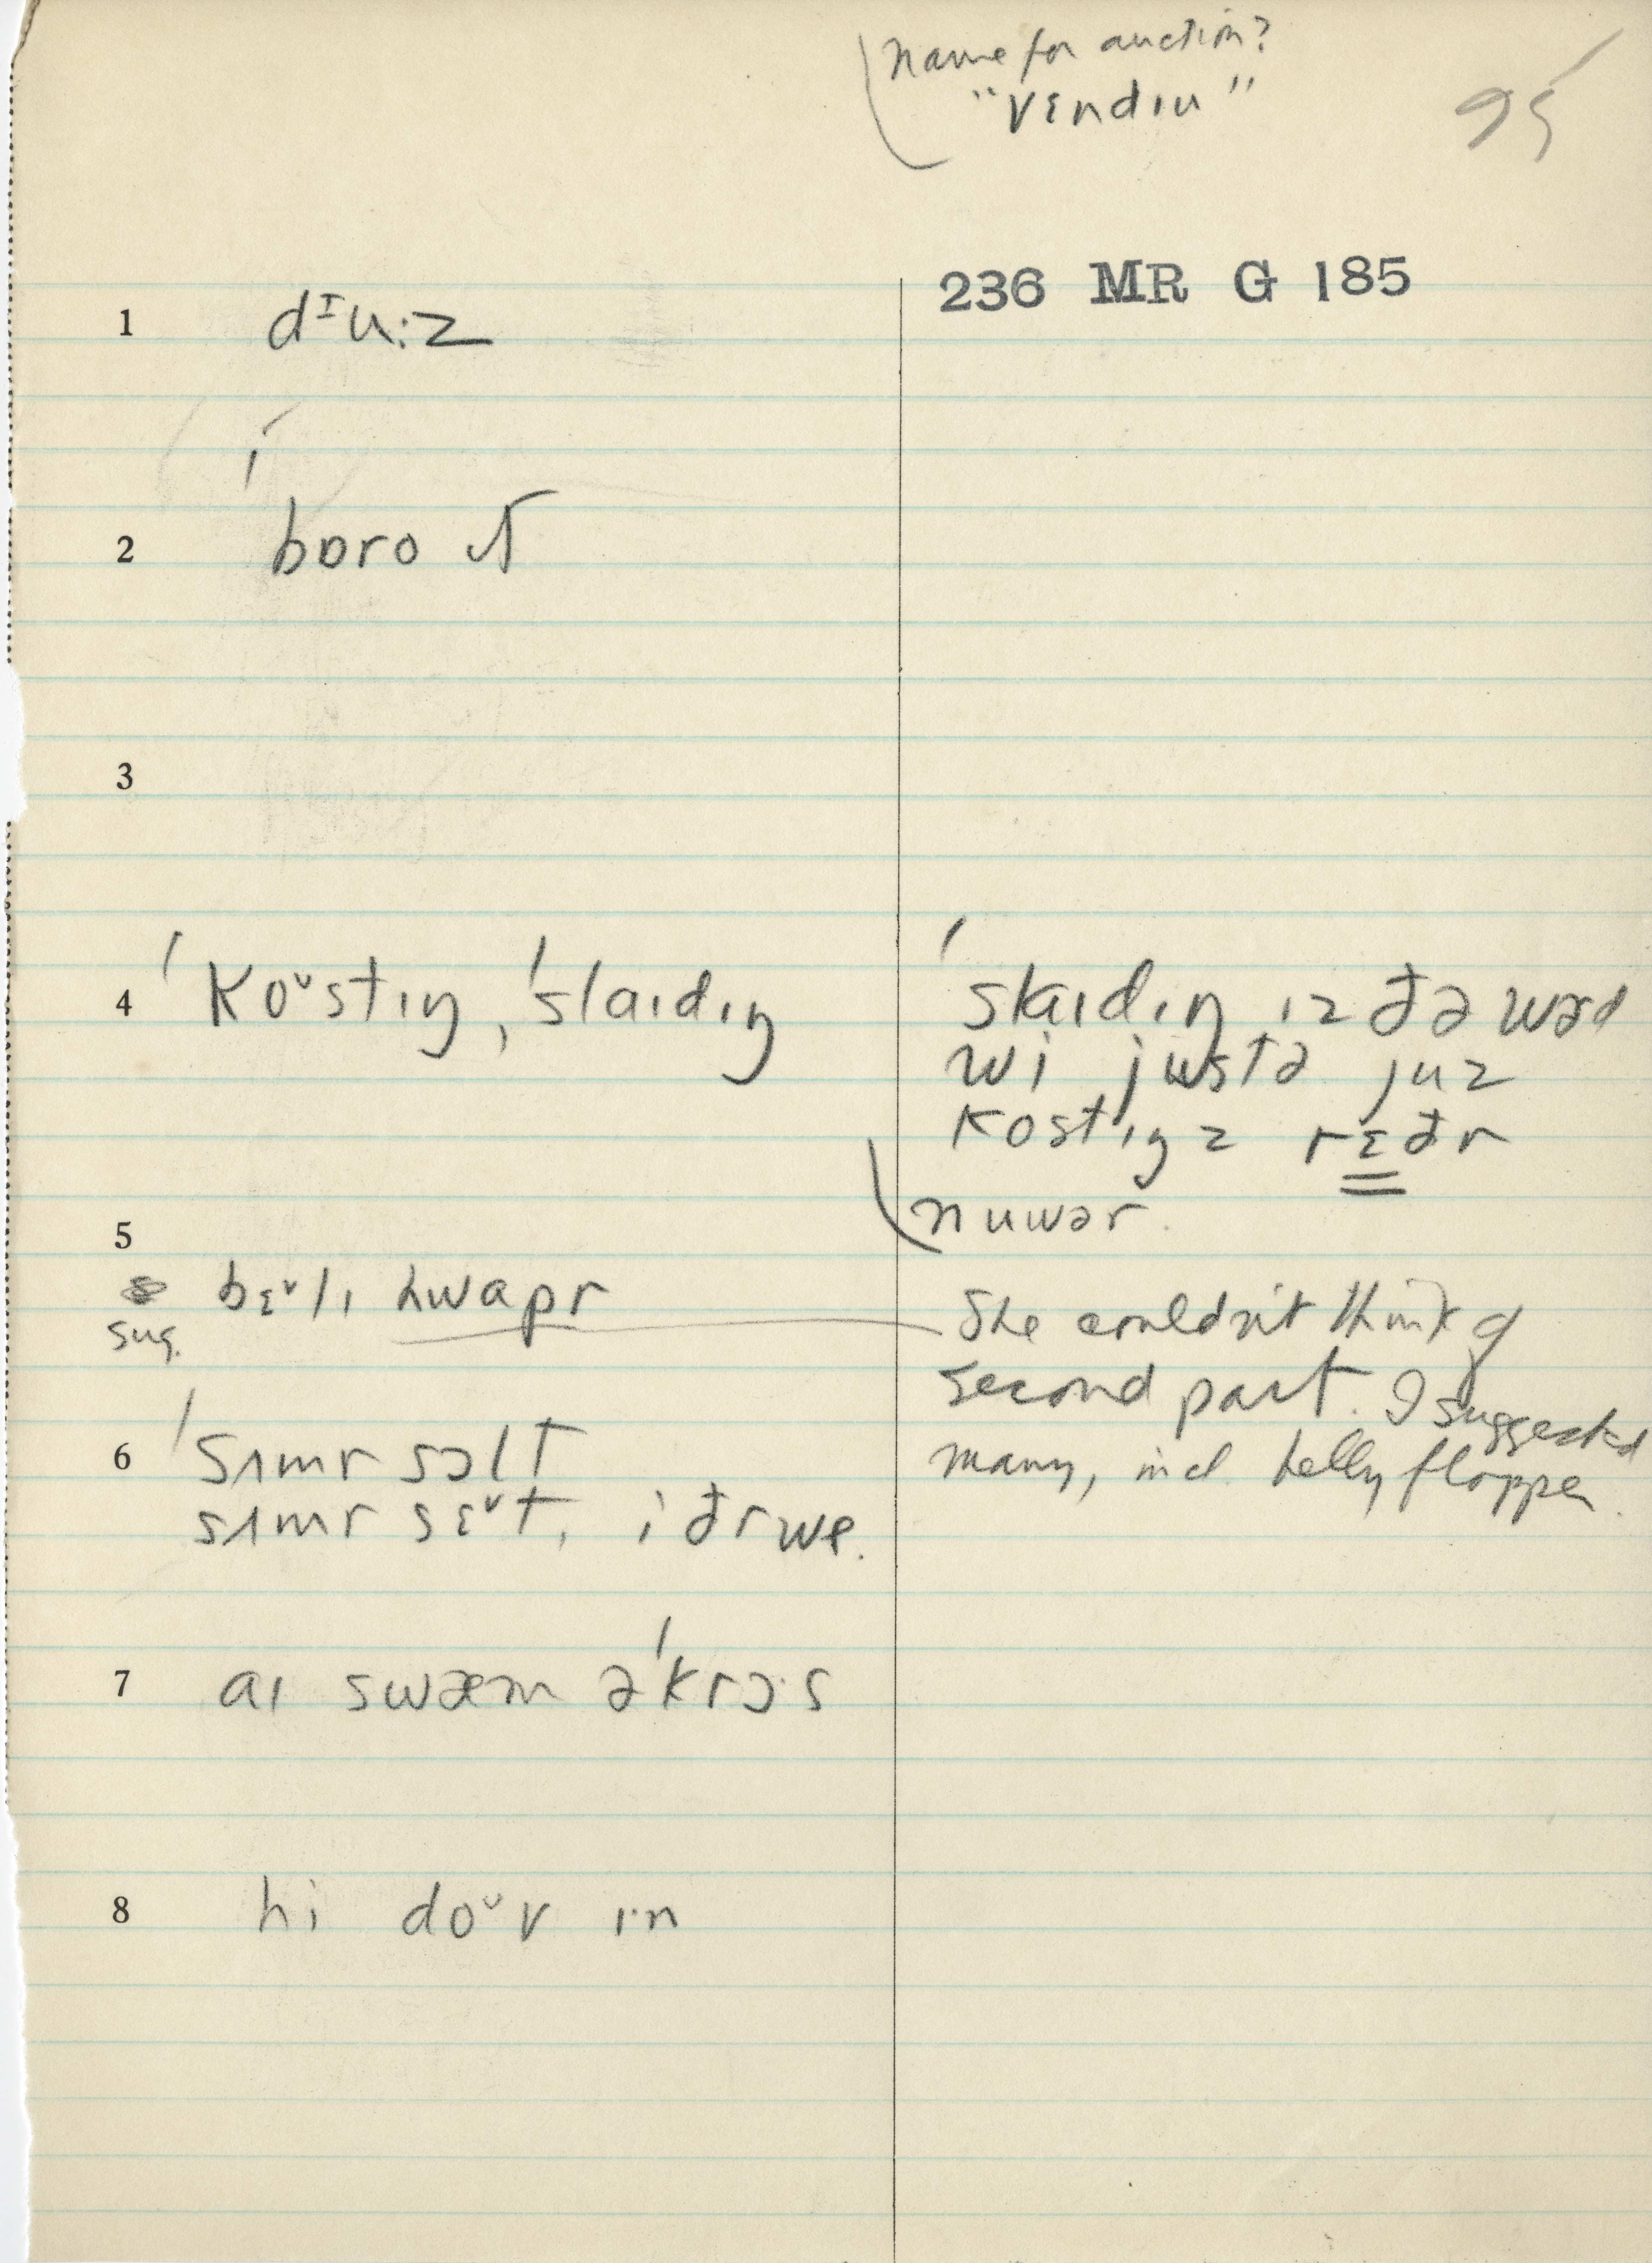 name for auction?
"vɛndɪu"
95
236 MR G 185
1 dᴵu:z
2 bɒro √
3
4 ˈkoᵛstɪŋ, ˈslaɪdɪŋ
ˈslaɪdɪŋ ɪz ðə wərd
wi justə juz
kostɪŋz rɛðr
nuwər.
5
sug.
bɛᵛlɪ hwapr
She couldn't think of
second part. I suggested
many, incl. belly flopper.
6 ˈsʌmr sɔlt
sʌmr sɛᵛt, iðr we.
7 aɪ swæm əˈkrɔ·s
8 hi doᵛv ɪ·n